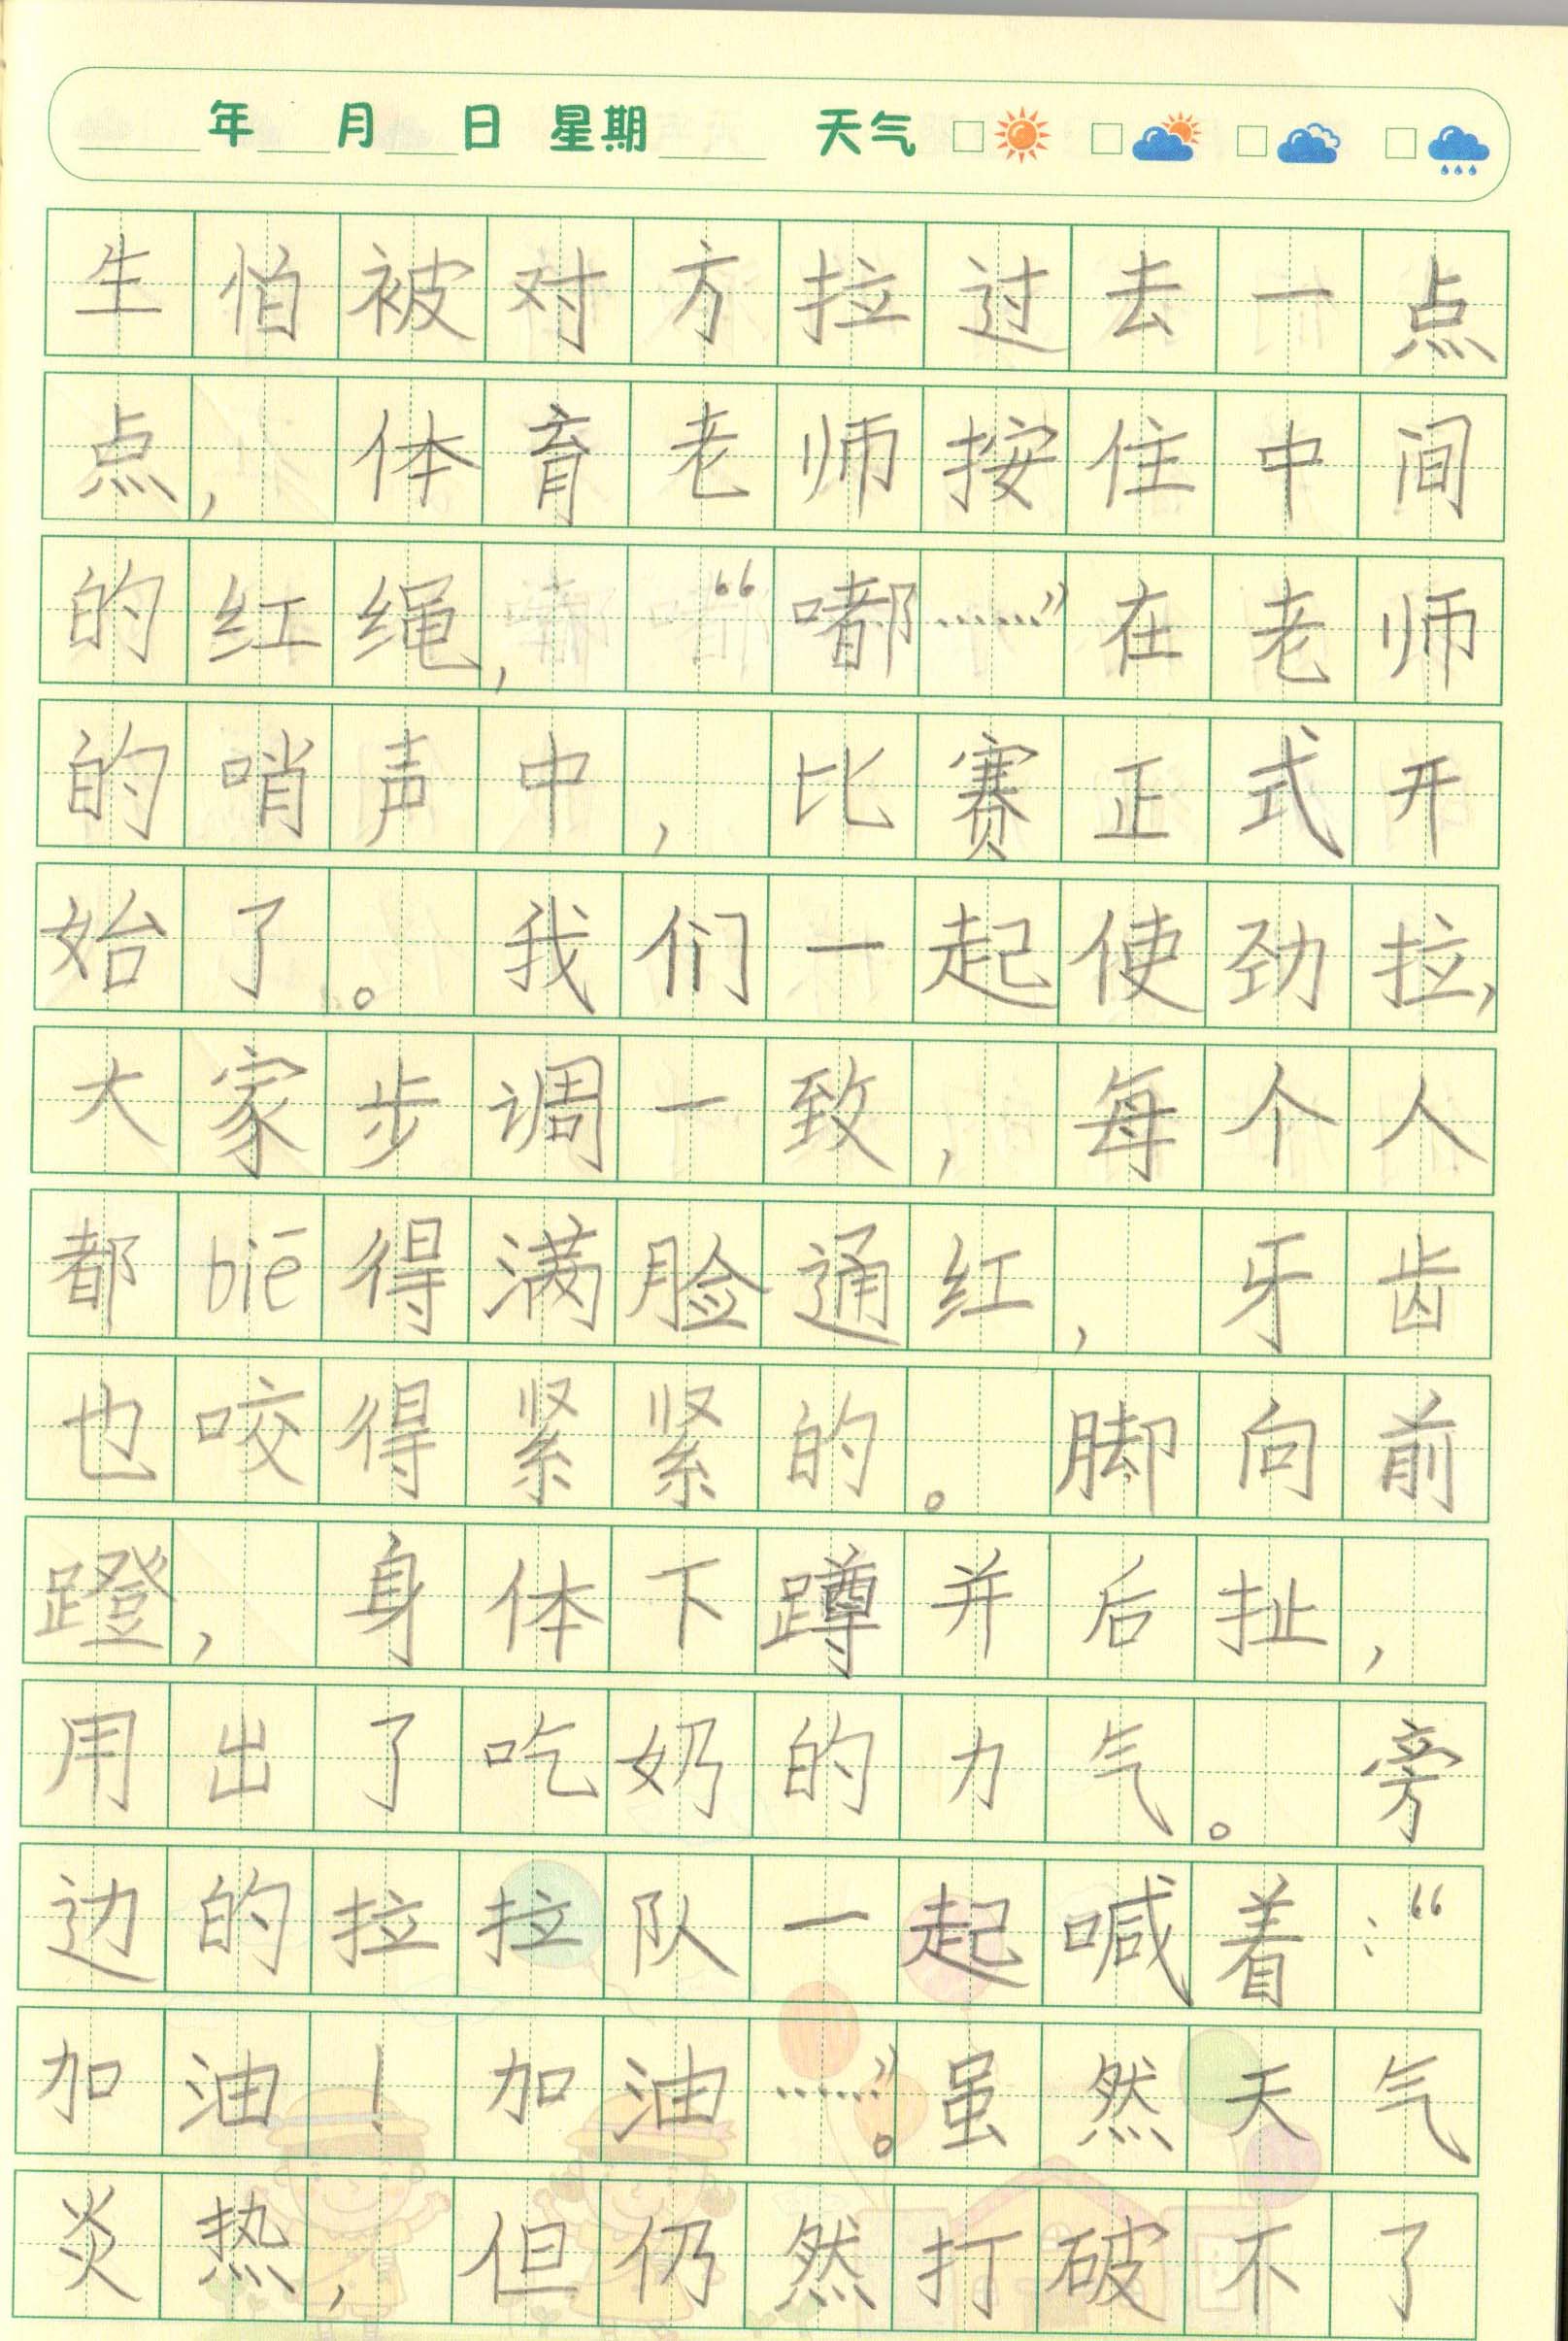 年 月 日 星期 天气
生怕被对方拉过去一点
点，体育老师按住中间
的红绳，“嘟……”在老师
的哨声中，比赛正式开
始了。我们一起使劲拉，
大家步调一致，每个人
都biē得满脸通红，牙齿
也咬得紧紧的。脚向前
蹬，身体下蹲并后扯，
用出了吃奶的力气。旁
边的拉拉队一起喊着：“
加油！加油……”。虽然天气
炎热，但仍然打破不了